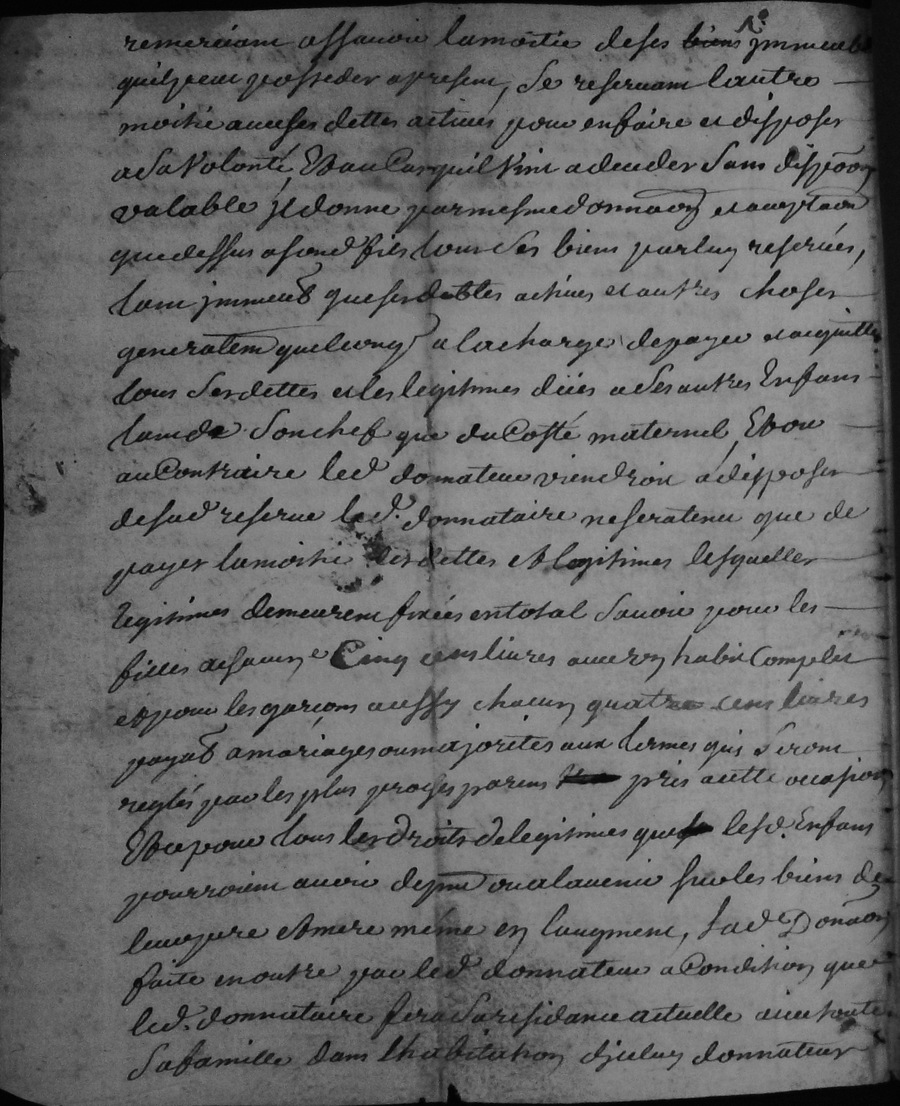 remerciant assavoir la moitie de ses biens jmmeub
quil peut posseder apresent, se reservant lautre
moitié avec ses dettes actives pour en faire et disposer
a sa volonté, Et au Cas quil vint a deceder sans disposõn
valable jl donne par mesme donnaõn et acceptaõn
que dessus a sond fils tous ses biens par luy reservés,
tant jmmeub que ses debtes actives et autres choses
generalemt quelconq a la charge de payer et acquitter
tous ses dettes et les legitimes dües a ses autres Enfans
tant de son chef que du Costé maternel, Et ou
au Contraire led donnateur viendroit a disposer
de sad reserve led. donnataire ne sera tenu que de
payer la moitié des dettes et legitimes lesquelles
legitimes demeurent fixées en total savoir pour les
filles a chacune Cinq cens livres avec un habit Complet
et pour les garçons aussy chacun quatre cens livres
payab a mariages ou majorités aux termes qui seront
reglés par les plus proches parens pris a cette occasion
Et ce pour tous les droits de legitimes que lesd. Enfans
pourroient avoir de pnt ou a lavenir sur les biens de
leur pere et mere même en laugment, Lad Donaõn
faite en outre par led donnateur a Condition que
led. donnataire fera sa residance actuelle avec toute
sa famille dans lhabitation djceluy donnateur